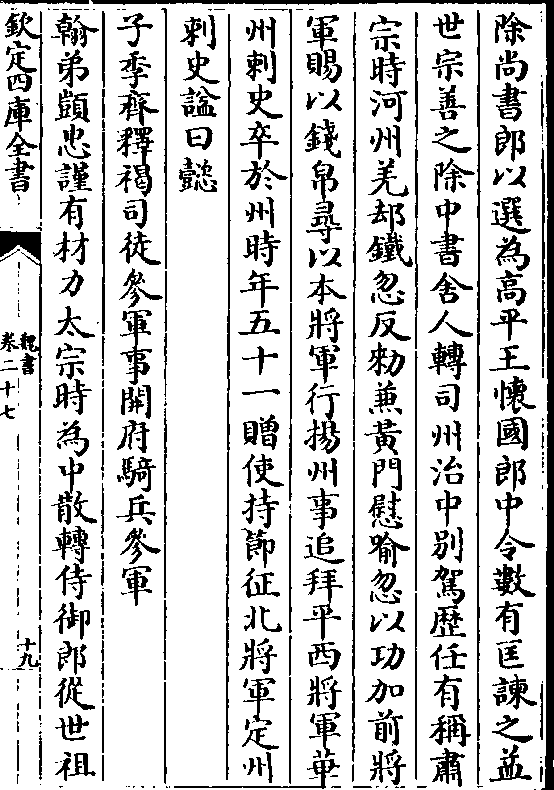 除尚書郎以選為高平王懷國郎中令數有匡諫之益
世宗善之除中書舍人轉司州治中別駕歴任有稱肅
宗時河州羌却鐵忽反勑兼黃門慰喻忽以功加前將
軍賜以錢帛尋以本將軍行揚州事追拜平西將軍華
州刺史卒於州時年五十一贈使持節征北將軍定州
刺史諡曰懿
子季齊釋褐司徒參軍事開府騎兵參軍
翰弟顗忠謹有材力太宗時為中散轉侍御郎從世祖
欽定四庫全書
魏書
卷二十七
十九